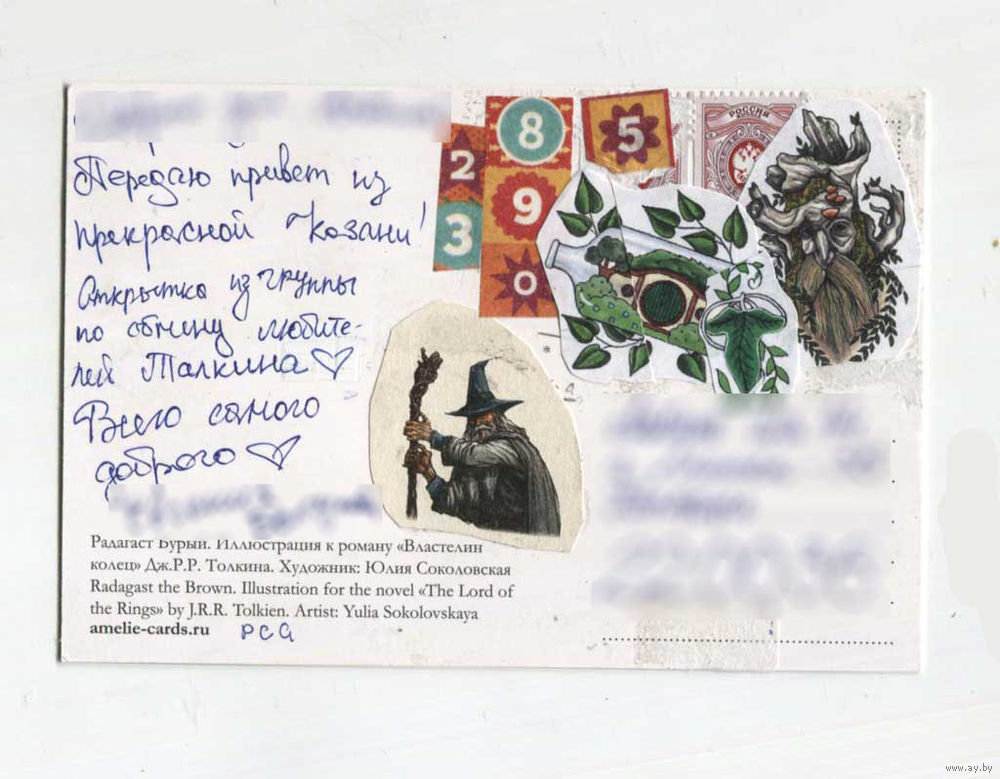 Передаю привет из
прекрасной Казани!
Открытка из группы
по обмену любите-
лей Толкина♡
Всего самого
доброго♡
Радагаст Бурый. Иллюстрация к роману «Властелин
колец» Дж.Р.Р. Толкина. Художник: Юлия Соколовская
Radagast the Brown. Illustration for the novel «The Lord of
the Rings» by J.R.R. Tolkien. Artist: Yulia Sokolovskaya
amelie-cards.ru
РСС
8
5
2
9
3
0
РОССИЯ
www.ay.by